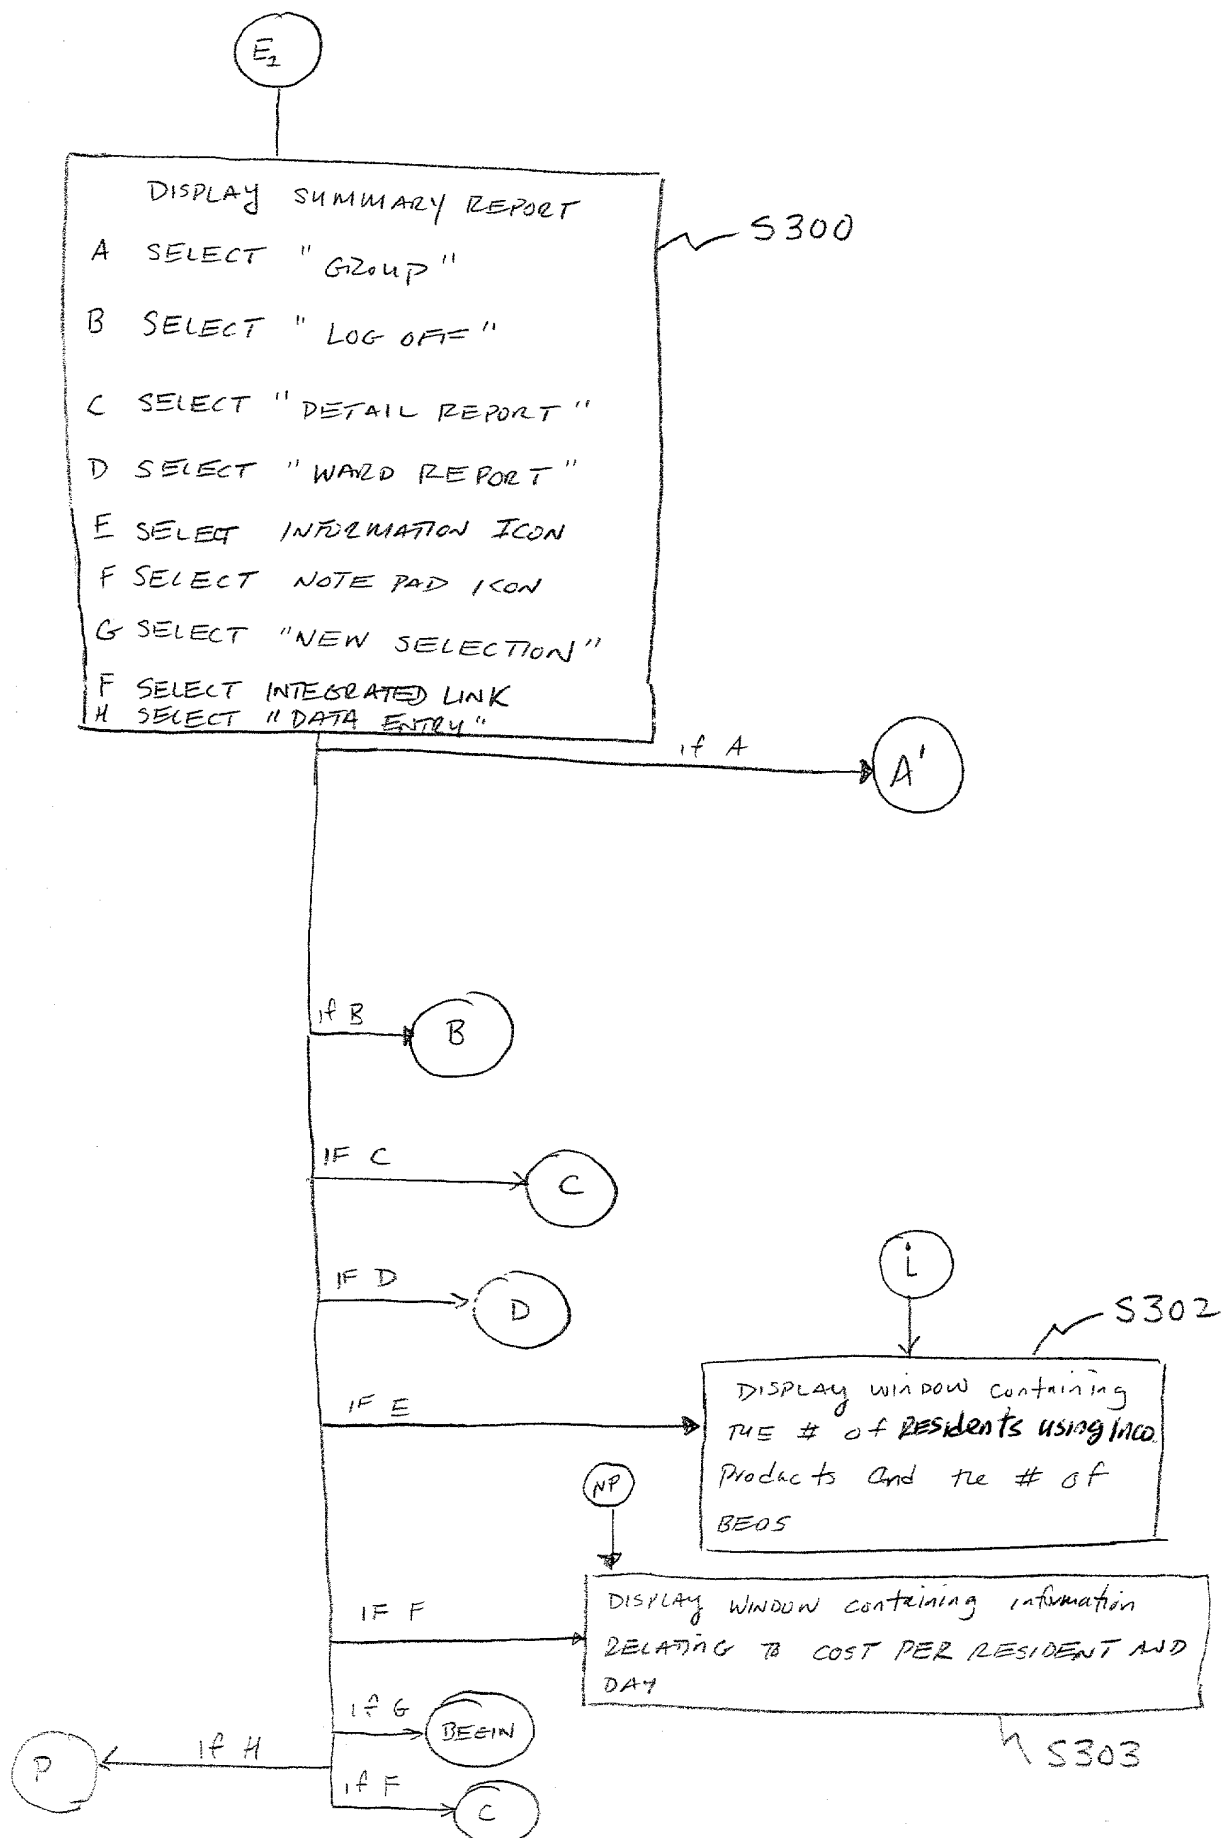 E2
DISPLAY SUMMARY REPORT
A SELECT "GROUP"
B SELECT "LOG OFF"
C SELECT "DETAIL REPORT"
D SELECT "WARD REPORT"
E SELECT INFORMATION ICON
F SELECT NOTE PAD ICON
G SELECT "NEW SELECTION"
F SELECT INTEGRATED LINK
H SELECT "DATA ENTRY"
S300
if A
A'
if B
B
IF C
C
IF D
D
i
S302
IF E
DISPLAY WINDOW containing
THE # of Residents using Inco.
Products and the # of
BEOS
NP
IF F
DISPLAY WINDOW containing information
RELATING TO COST PER RESIDENT AND
DAY
S303
if G
BEGIN
if H
P
if F
C